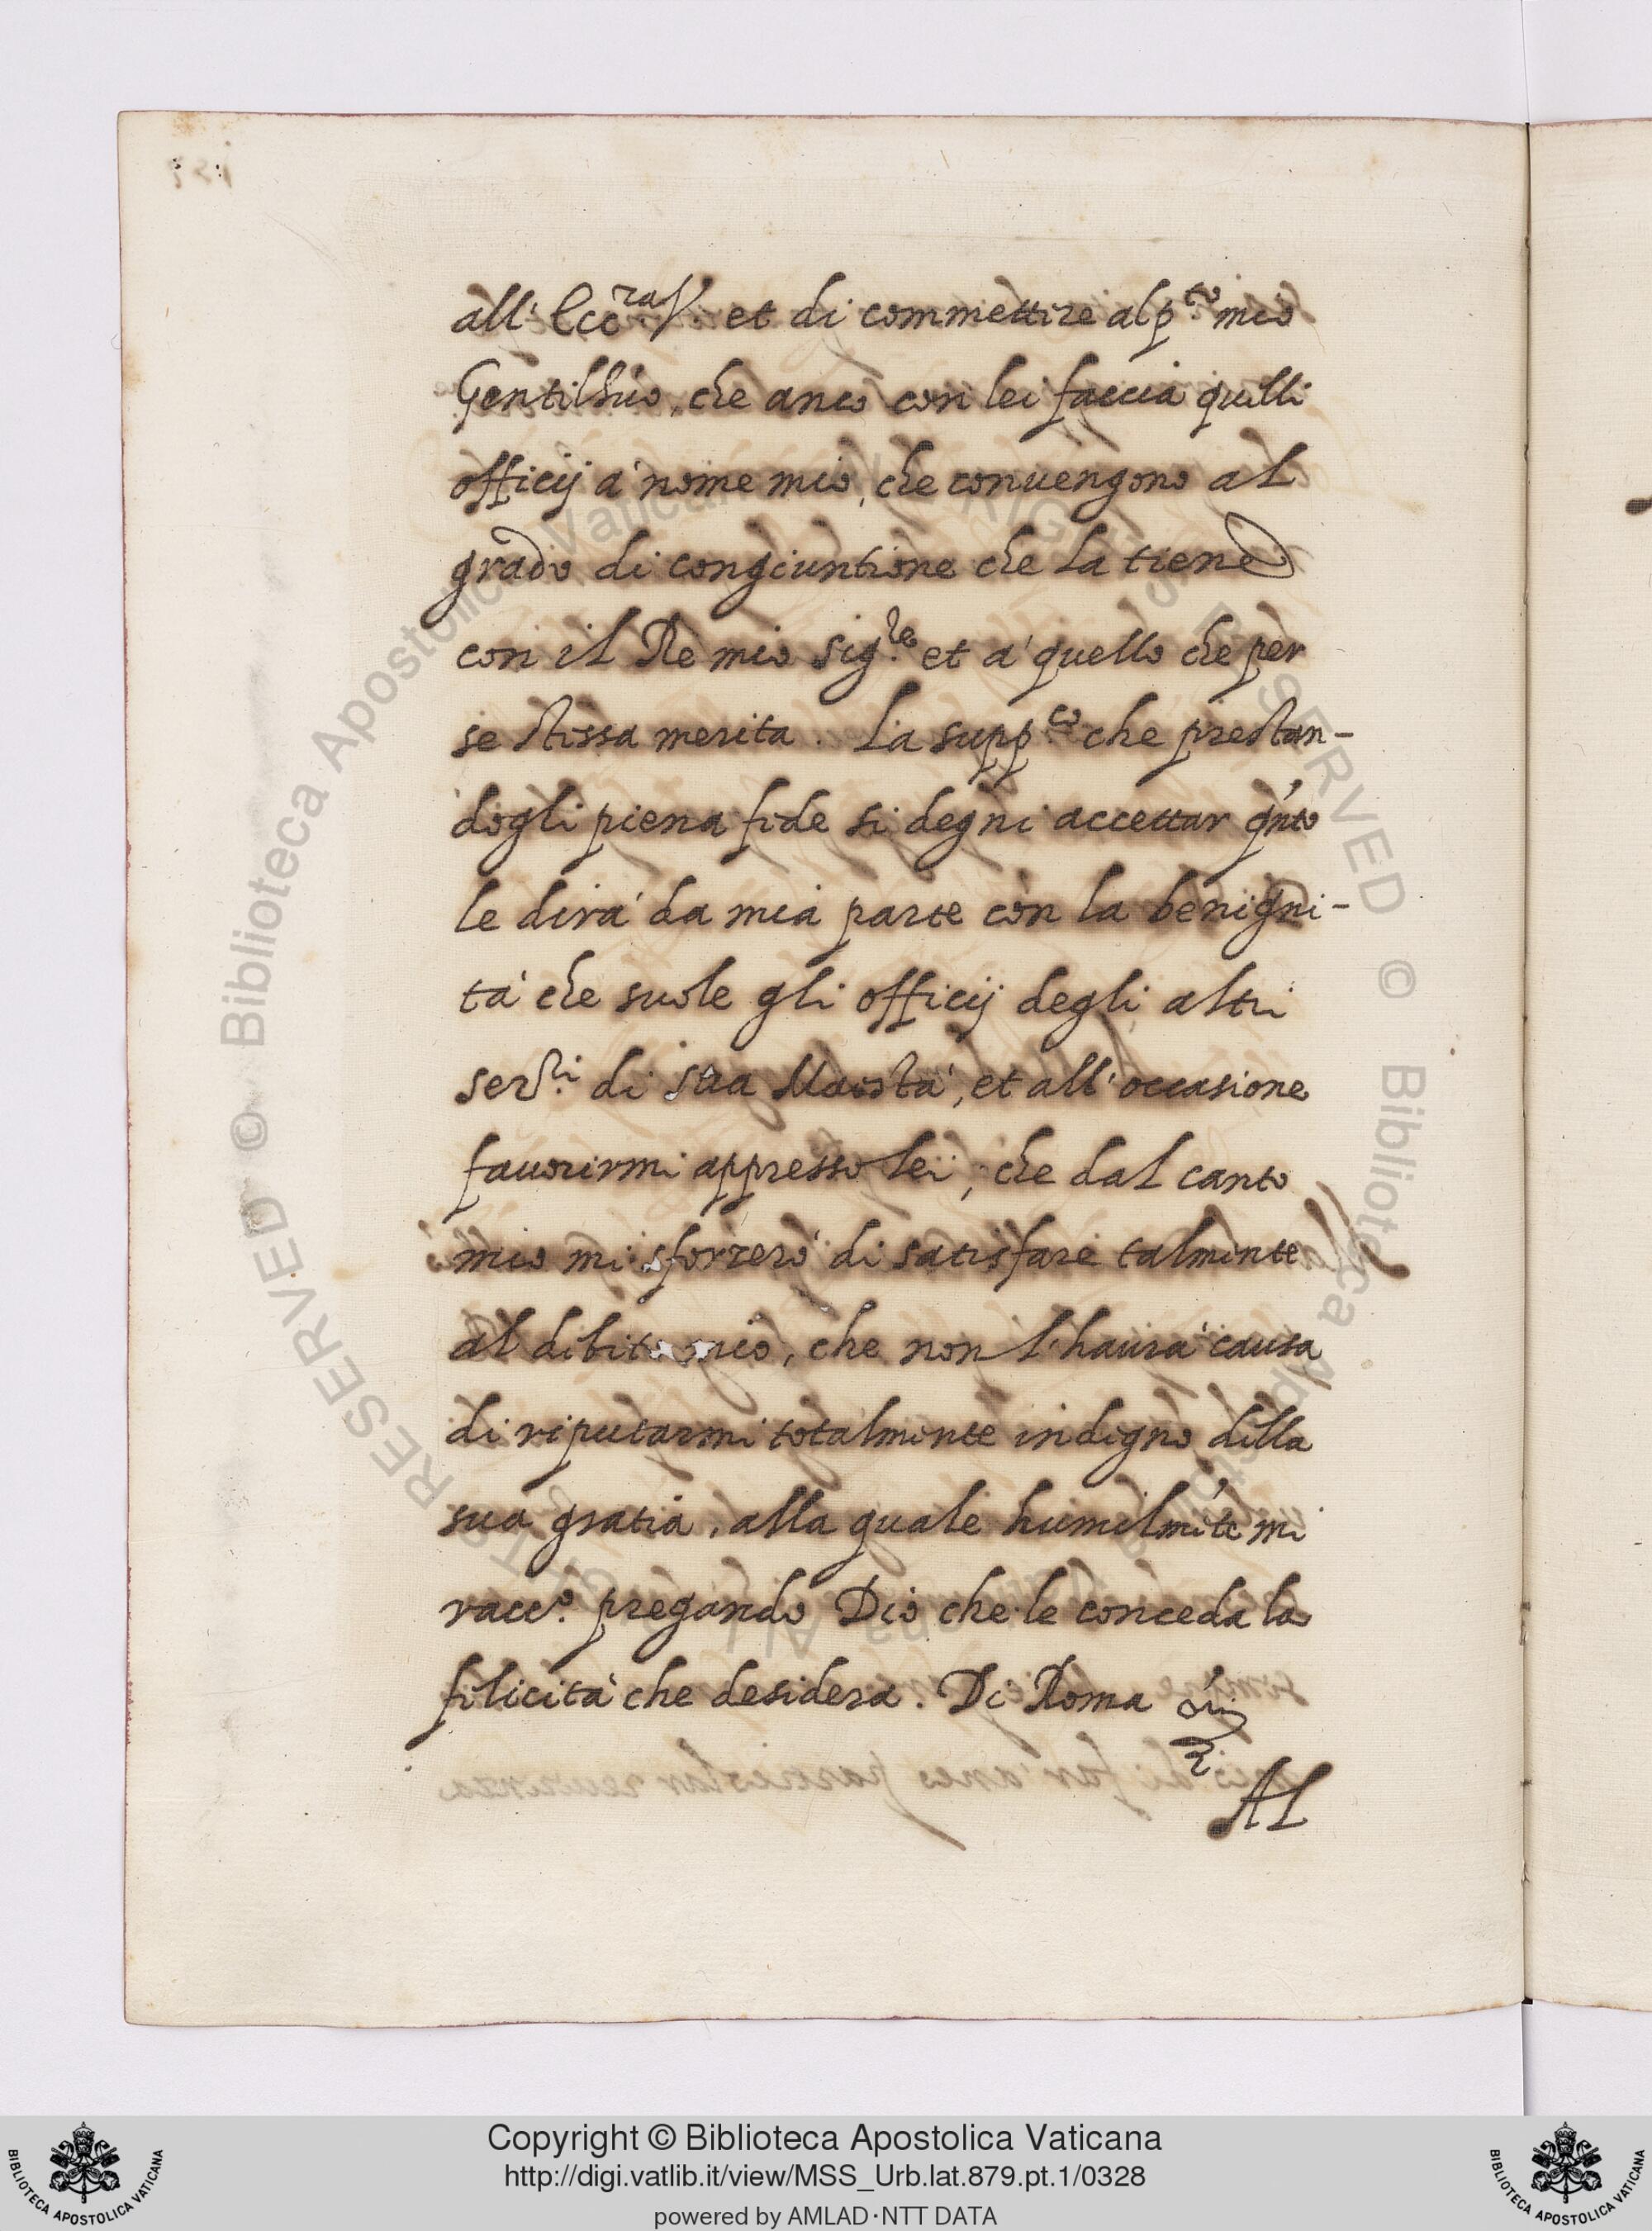 all' Ecc.ra V. et di commettere al p.to mio
Gentilhuo, che anco con lei faccia quelli
officij à nome mio, che convengono al
grado di congiuntione che la tiene
con il Re mio Sig.re et à quello che per
se stessa merita. La supp.co che prestan-
dogli piena fede si degni accettar q'nto
le dirà da mia parte con la benigni-
tà che suole gli officij degli altri
ser.ri di sua Maestà, et all' occasione
favorirmi appresso lei, che dal canto
mio mi sforzerò di satisfare talmente
al debito mio, che non l'haurà causa
di reputarmi totalmente indegno della
sua gratia, alla quale humilm'te mi
racc.o pregando Dio che le conceda la
felicità che desidera. Di Roma
Al
© Biblioteca Apostolica Vaticana ALL RIGHTS RESERVED
Copyright © Biblioteca Apostolica Vaticana
http://digi.vatlib.it/view/MSS_Urb.lat.879.pt.1/0328
powered by AMLAD·NTT DATA
BIBLIOTECA APOSTOLICA VATICANA
BIBLIOTECA APOSTOLICA VATICANA